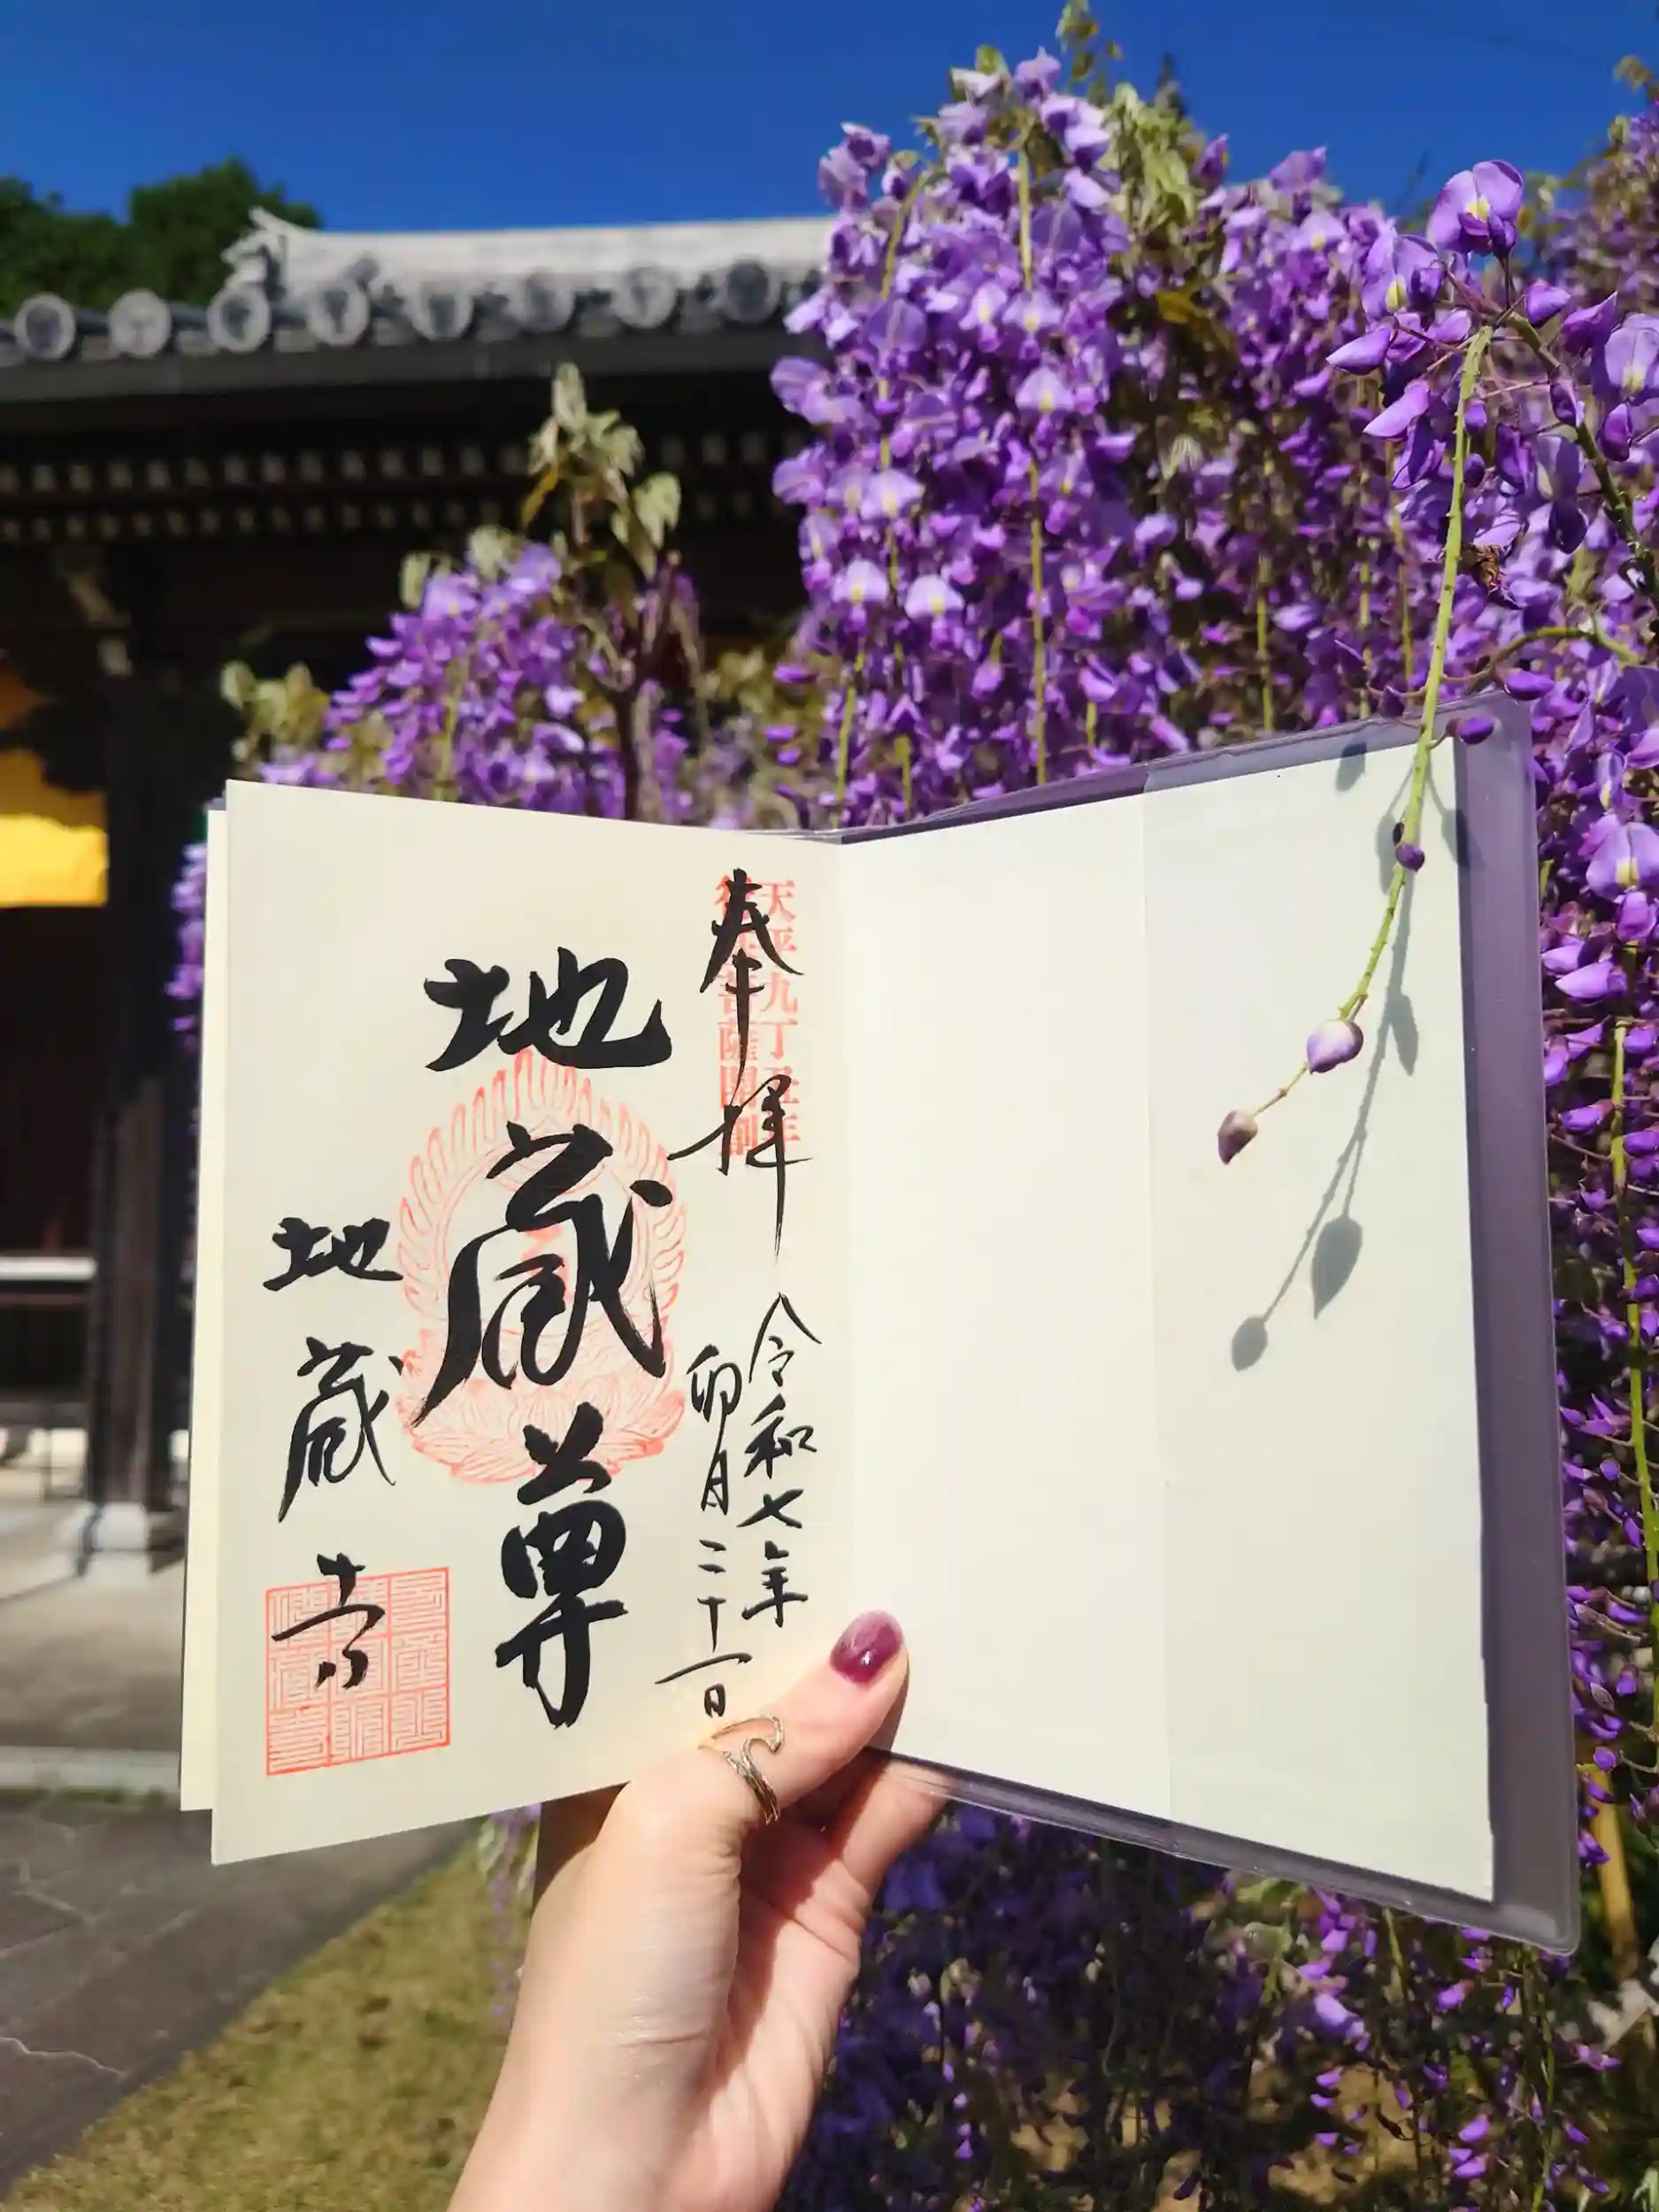 奉拝
天平九丁丑年
行基菩薩開創
令和七年
卯月二十一日
地蔵尊
地蔵寺